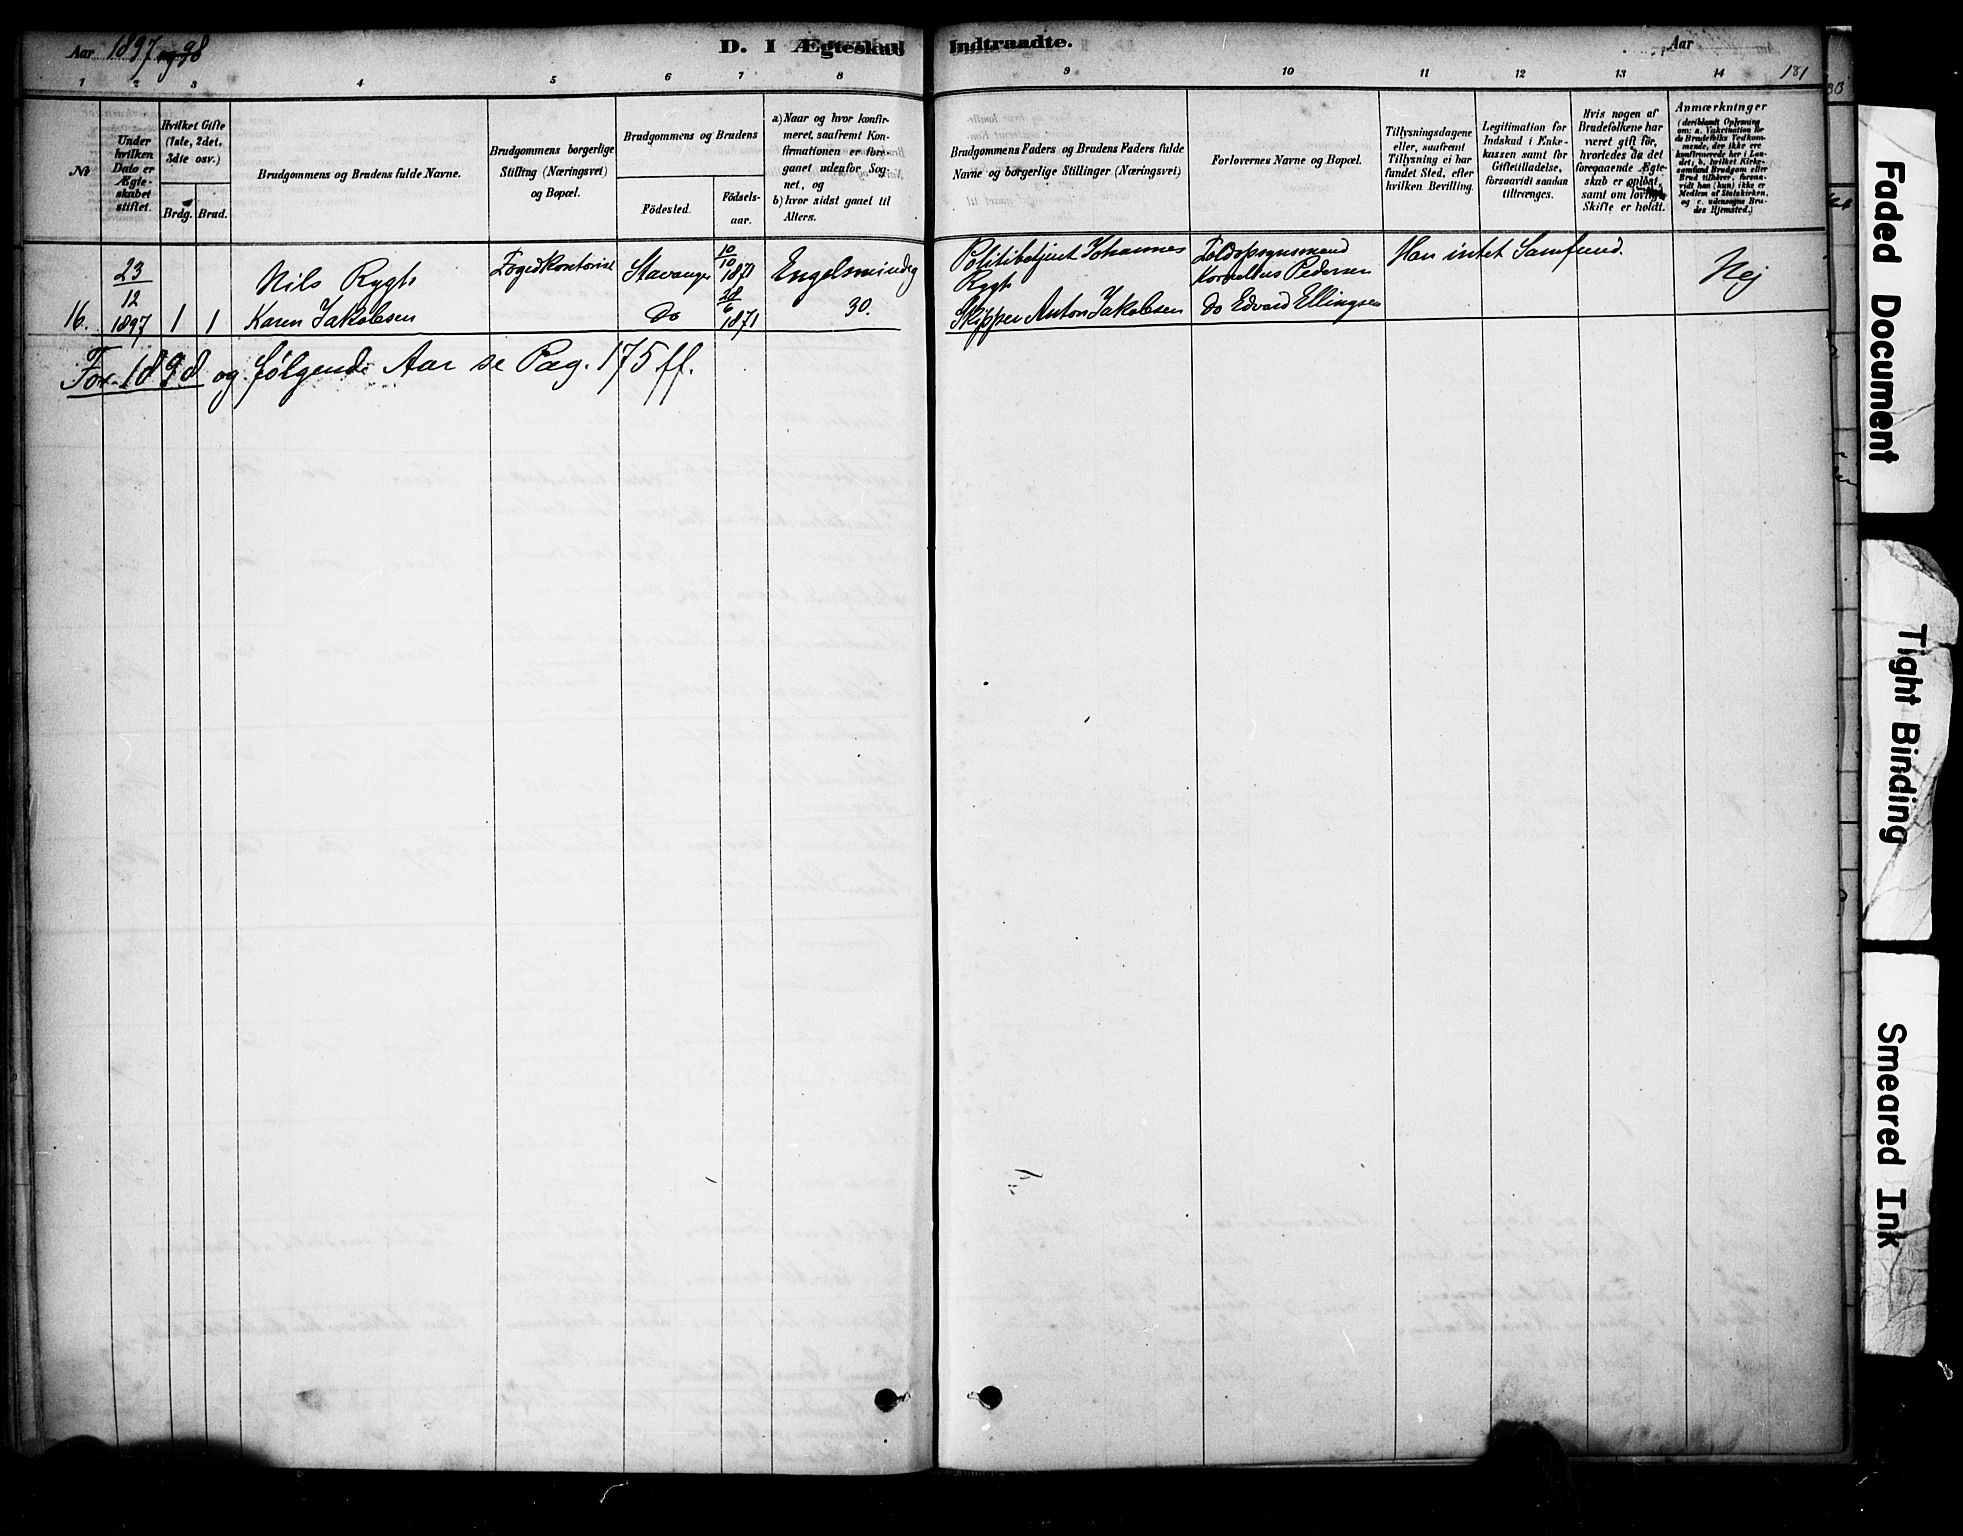 Aar 1897 og 98
D. I Ægteskab Indtraadte.
Aar
181
1 2 3 4 5 6 7 8 9 10 11 12 13 14
No
Under hvilken Dato er Ægteskabet stiftet.
Hvilket Gifte (1ste, 2det, 3die osv.)
Brdg. Brud.
Brudgommens og Brudens fulde Navne.
Brudgommens borgerlige Stilling (Næringsvei) og Bopæl.
Brudgommens og Brudens
Födested.
Födselsaar.
a) Naar og hvor konfirmeret, saafremt Konfirmationen er foregaaet udenfor Sognet, og
b) hvor sidst gaaet til Alters.
Brudgommens Faders og Brudens Faders fulde Navne og borgerlige Stillinger (Næringsvei)
Forlovernes Navne og Bopæl.
Tillysningsdagene eller, saafremt Tillysning ei har fundet Sted, efter hvilken Bevilling.
Legitimation for Indskud i Enkekassen samt for Giftetilladelse, forsaavidt saadan tiltrænges.
Hvis nogen af Brudefolkene har været gift för, hvorledes da det foregaaende Ægteskab er oplöst, samt om lovligt Skifte er holdt.
Anmærkninger (deriblandt Oplysning om: a. Vakcination for de Brudefolks Vedkommende, der ikke ere konfirmerede her i Landet; b. hvilket Kirkesamfund Brudgom eller Brud tilhører, forsaavidt han (hun) ikke er Medlem af Statskirken, og c. udensogns Brudes Hjemsted.)
16.
23/12 1897
1 1
Nils Rygh
Karen Jakobsen
Fogedkontorist
Stavanger
Do
10/10 1871
28/6 1871
Engelsmindeg 30.
Politibetjent Johannes Rygh
Skipper Anton Jakobsen
Toldopsynsmand Kornelius Pedersen
Do Edvard Ellingsen
Han intet Samfund.
Nej
For 1898 og følgende Aar se Pag. 175 ff.
Faded Document
Tight Binding
Smeared Ink